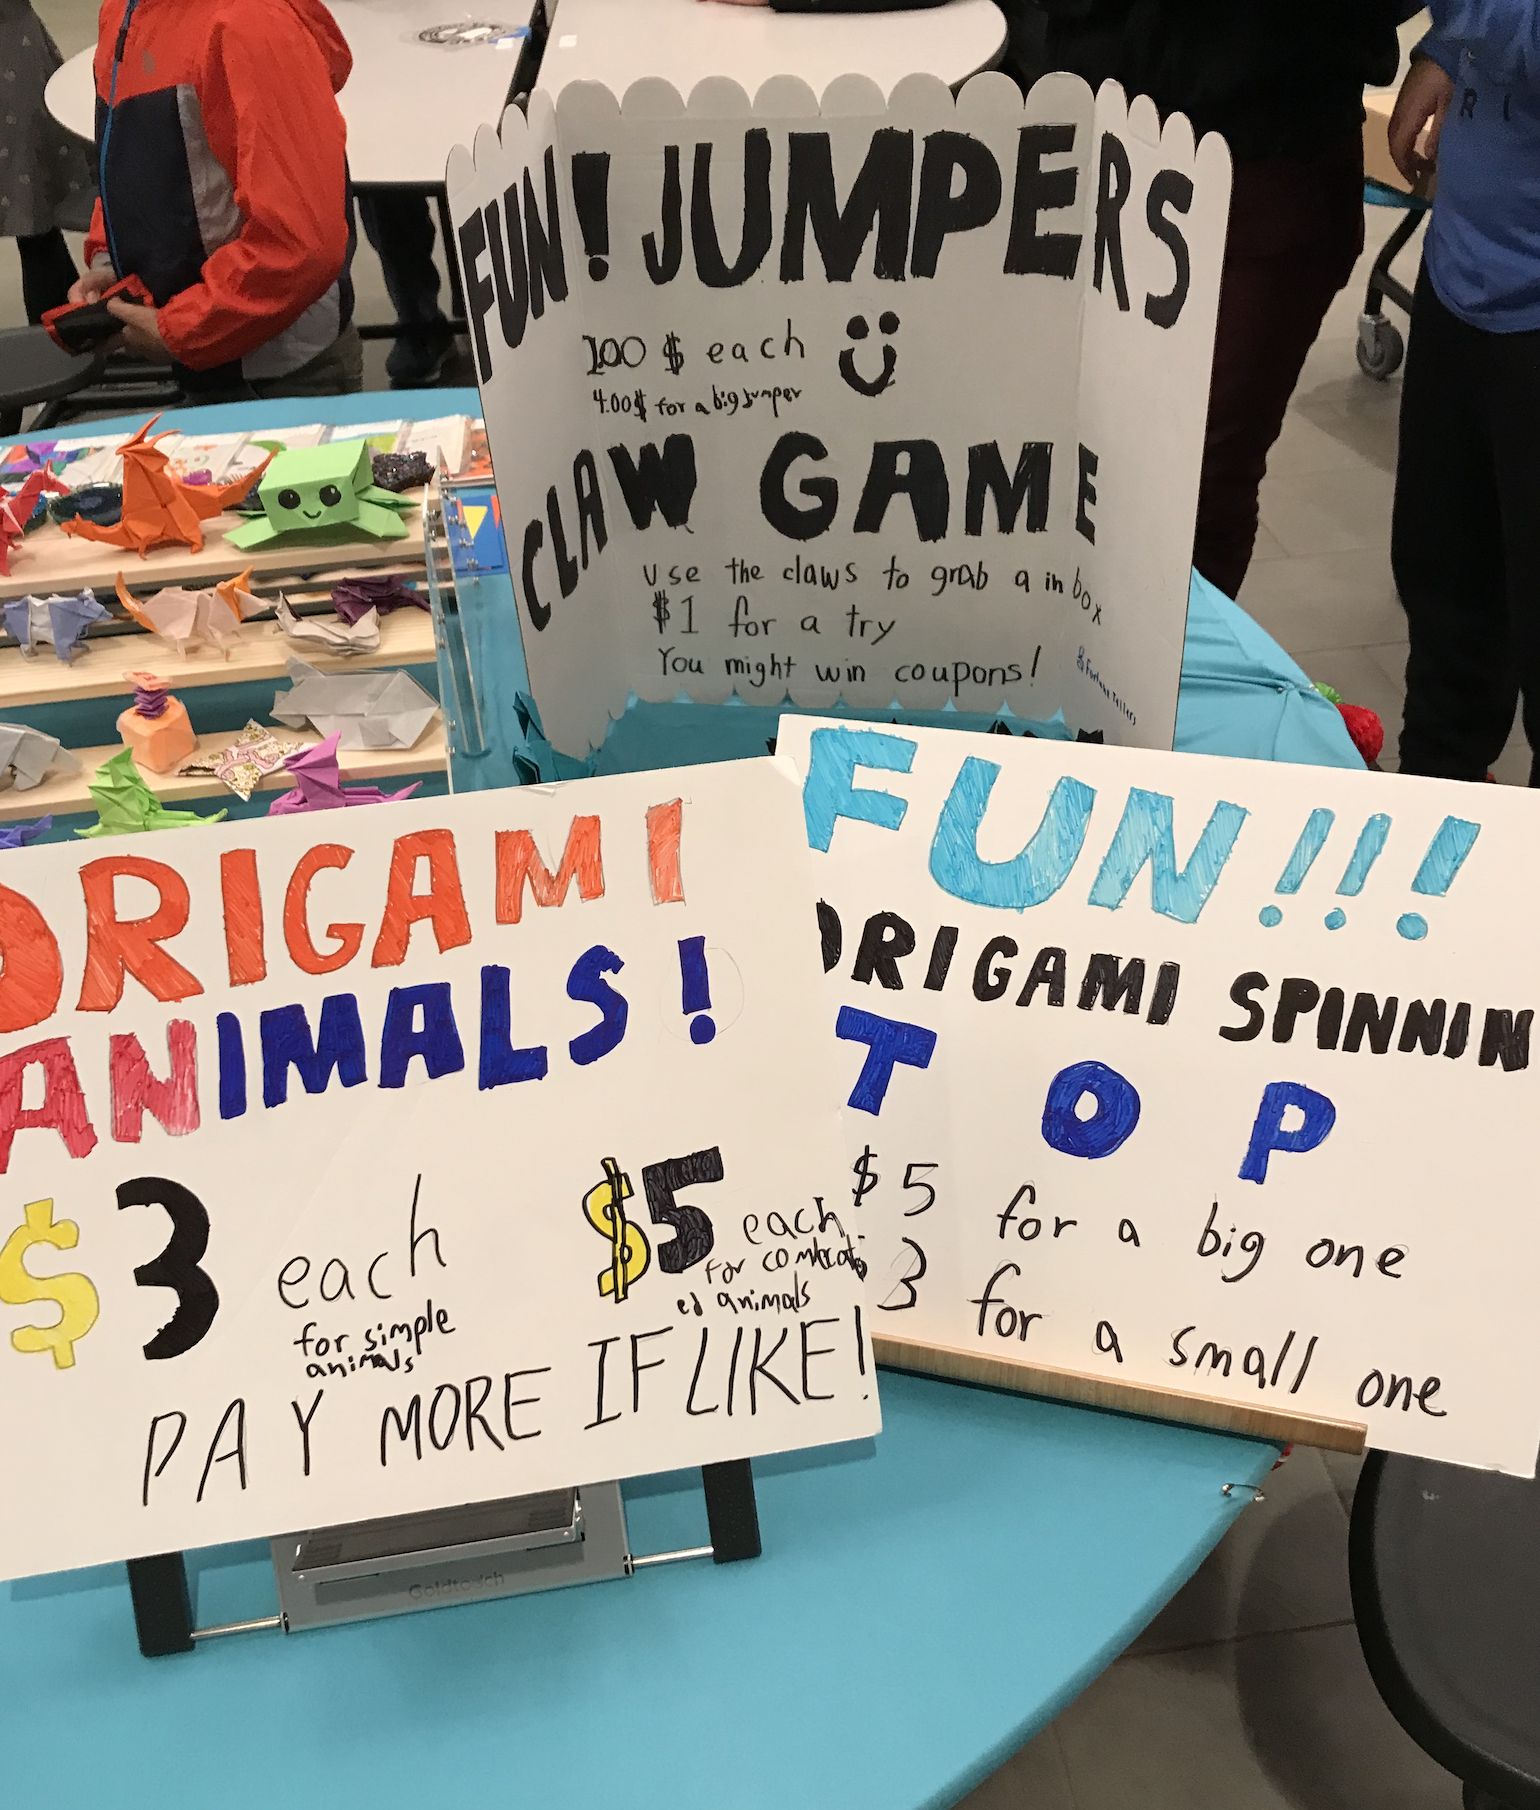 FUN! JUMPERS
100 $ each
4.00$ for a big jumper
CLAW GAME
Use the claws to grab a in box
$1 for a try
You might win coupons!
& Fortune Tellers
ORIGAMI
ANIMALS!
$3 each
for simple
animals
$5 each
for complicat
ed animals
PAY MORE IF LIKE!
FUN!!!
ORIGAMI SPINNIN
TOP
$5 for a big one
3 for a small one
Goldtouch
RI